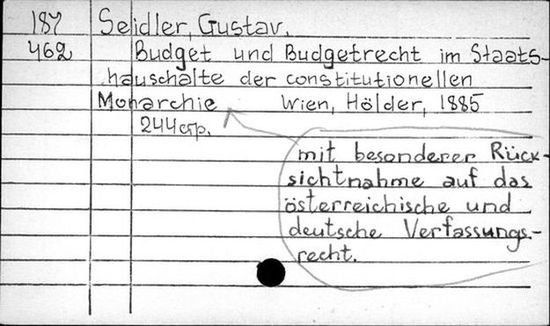 187 Seidler, Gustav.
462 Budget und Budgetrecht im Staats-
haushalte der constitutionellen
Monarchie Wien, Hölder, 1885
244 стр.
mit besonderer Rück-
sichtnahme auf das
österreichische und
deutsche Verfassungs-
recht.